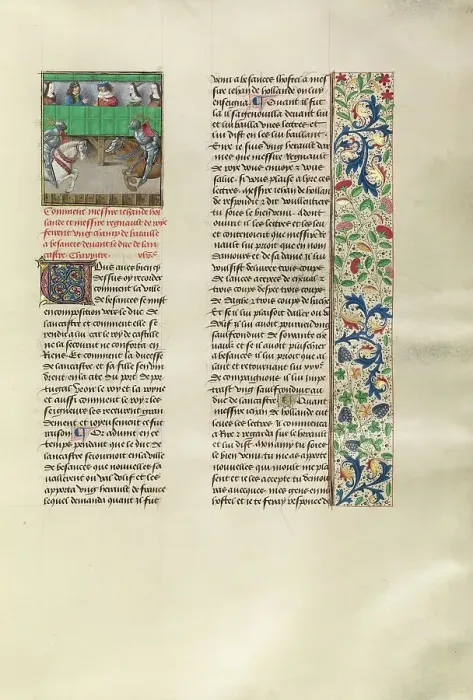 Comment messire iehan de hol
lande et messire regnault de roye
firent ung champ de bataille
a besances deuant le duc de lan
castre. Chappitre.
Vous aues bien cy
dessus oy recorder
comment la ville
de besances se mist
en composition vers le duc de
lancastre et comment elle se
rendi a lui car le roy de castille
ne la secouroit ne conforta en
Riens Et comment la ducesse
de lancastre et sa fille sen
dirent en la cite du port de por
tugal veoir le roy et la royne
et aussi comment le roy et les
seigneurs les receurent gran
dement et ioyeusement ce fut
raison Or aduint en ce
temps pendant que le duc de
lancastre seiournoit en la ville
de besances que nouuelles sa
uallerent ou val dolif et les
apporta ung herault de france
lequel demanda quant il fut
venu a besances lhostel a mes
sire iehan de hollande on luy
enseigna Quant il fut
la il sagenouilla deuant lui
et lui bailla unes lettres et
lui dist en les lui baillant.
Sire ie suis ung herault dar
mes que messire Regnault
de roye vous enuoye et vous
salue. si vous plaise a lyre ces
lettres. Messire iehan de hollan
de respondit et dit voullentiers
tu soies le bien venu. adont
ouurit il les lettres et les leu
et contenoient que messire Re
gnault lui prioit que en nom
damours et de sa dame il lui
voulsist deliurer trois coups
de lances acerees de cheual et
trois coups despee trois coups
de daghe et trois coups de hache
Et se il lui plaisoit daller ou val
dolif il lui auoit pourueu ung
saulfconduit de soixante che
uaulx et se il auoit plus chier
a besances il lui prioit que al
last et retournast lui XXXe
de compaignons il lui impe
trast ung saulfconduit au
duc de lancastre Quant
messire iehan de hollande eut
leues les lettres Il commenca
a Rire et regarda sur le herault
et lui dist. Mon amy tu soies
le bien venu tu mas apporte
nouuelles qui moult me plai
sent et ie les accepte tu demour
ras auecques mes gens en mon
hostel et ie te feray responce de